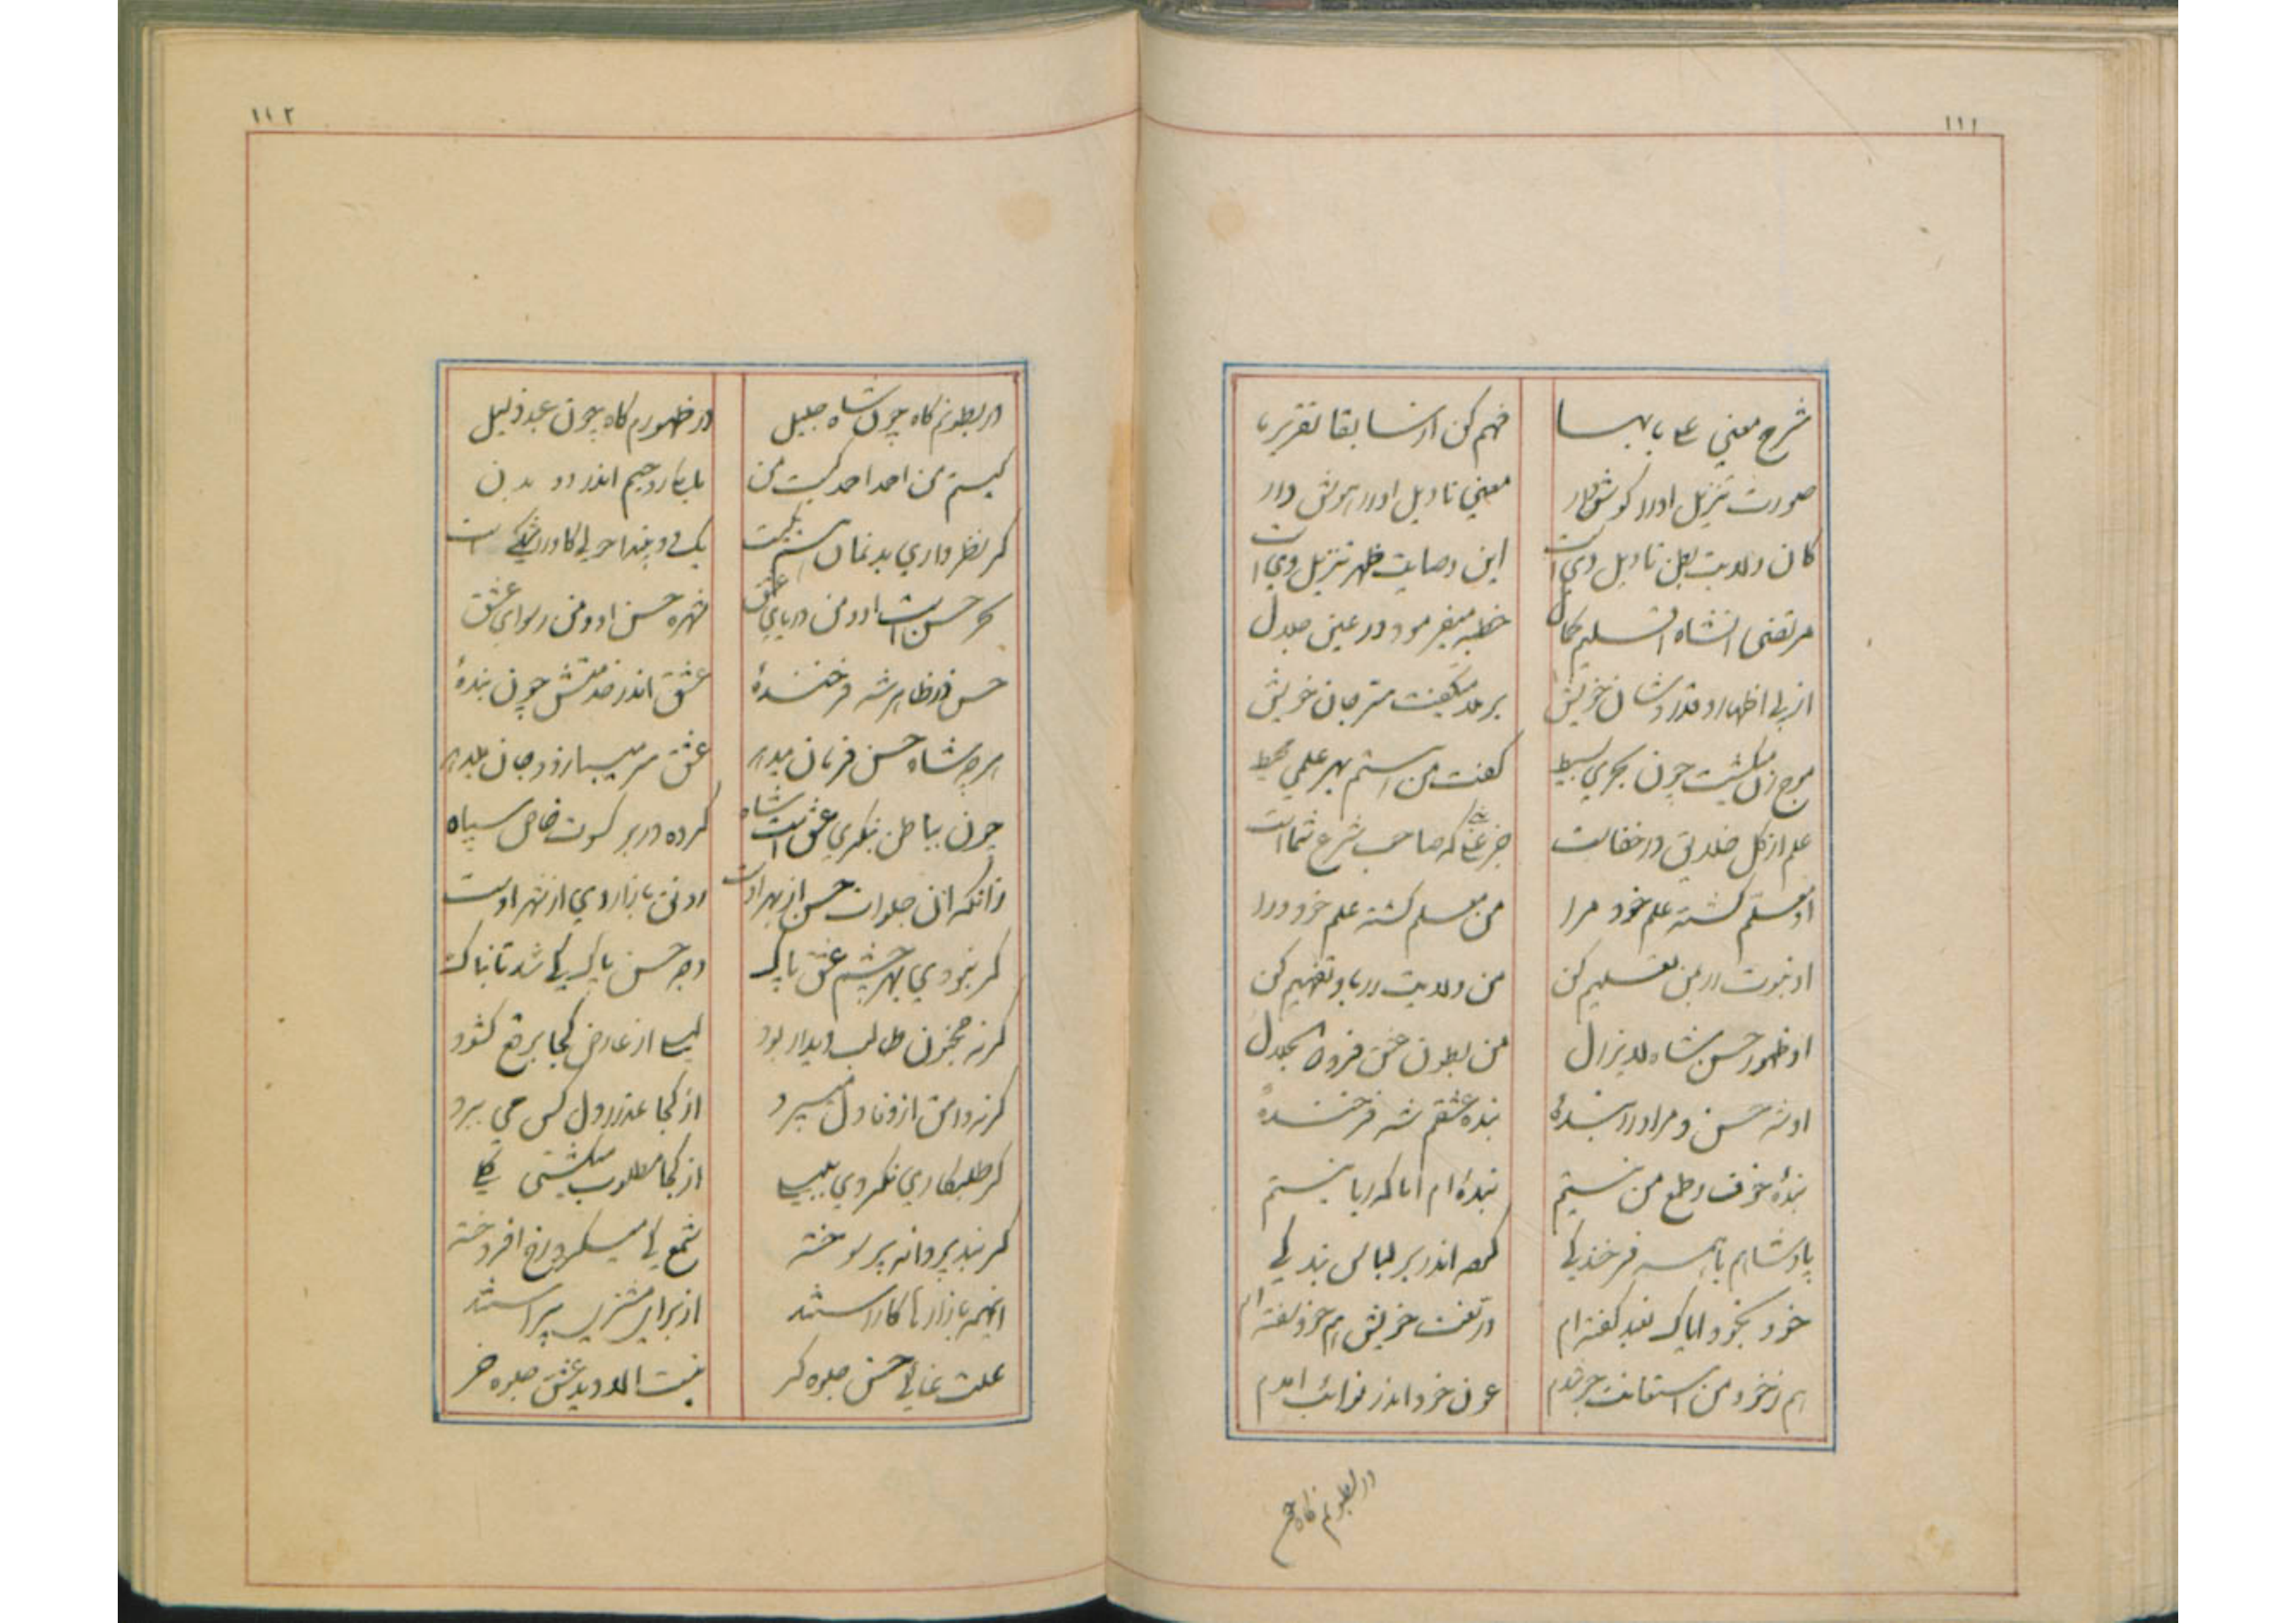 ۱۱۱
شرح معنی علی بابها فهم کن از سابقا تقریرها
صورت تنزیل او را گوش دار معنی تاویل او را هوش دار
کان ولایت بطن تاویل وی است این وصایت ظهر تنزیل وی است
مرتضی انشاه اقلیم کمال خطبه میفرمود در عین جلال
از پی اظهار و قدر و شان خویش برملا میگفت سر جان خویش
موج زن میگشت چون بحری بسیط گفت من هستم بهر علمی محیط
علم از کل خلایق در خفاست جز که صاحب شرع شماست
او معلم گشته علم خود مرا من معلم گشته علم خود ورا
او نبوت را بمن تعلیم کن من ولایت را باو تفهیم کن
او ظهور حسن شاه لایزال من بطون عشق فرد
او شه حسن و مرا او را بنده بنده عشقم شه فرخنده
بنده خوف و طمع من نیستم بنده ام اما که را بایستم
پادشاهم با همه فرخندگی کرده اندر بر لباس بندگی
خود بخود ایاک نعبد گفته ام در نعت خویش هم خود گفته ام
هم ز خود من استعانت عون خود اندر نوائب آمدم
در بطونم گاه چو
۱۱۲
در بطونم گاه چون شاه جلیل در ظهورم گاه چون عبد ذلیل
کیستم من احمد احمد کیست من یا یکی روحیم اندر دو بدن
گر نظر داری بدنمان هست یکیست یک دو بیند احولی کاو را شکی است
حسن است او و من دریای عشق شهره حسن او و من رسوای عشق
حسن در ظاهر شه فرخنده عشق اندر خدمتش چون بنده
هرچه شاه حسن فرمان میدهد عشق سر میبازد و جان میدهد
چون بباطن بنگری عشق است شاه کرده در بر کسوت خاص سپاه
زانکه آن جلوات حسن از بهر اوست رونق بازار وی از شهر اوست
گر نبودی بهر چشم عشق پاک وجه حسن پاک کی شد تابناک
گر نه مجنون طالب دیدار بود لیلی از عارض کجا برقع گشود
گر نه وامق از وفا دل میسپرد از کجا عذرا دل کس می ببرد
گر طلبکاری نکردی بلبلی از کجا مطلوب میگشتی گلی
گر نبد پروانه پر سوخته شمع کی میکرد رخ افروخته
اینهمه بازارها کاراستند از برای مشتری پیراستند
علت غائی حسن جلوه گر نیست الا دید عشق جلوه خر